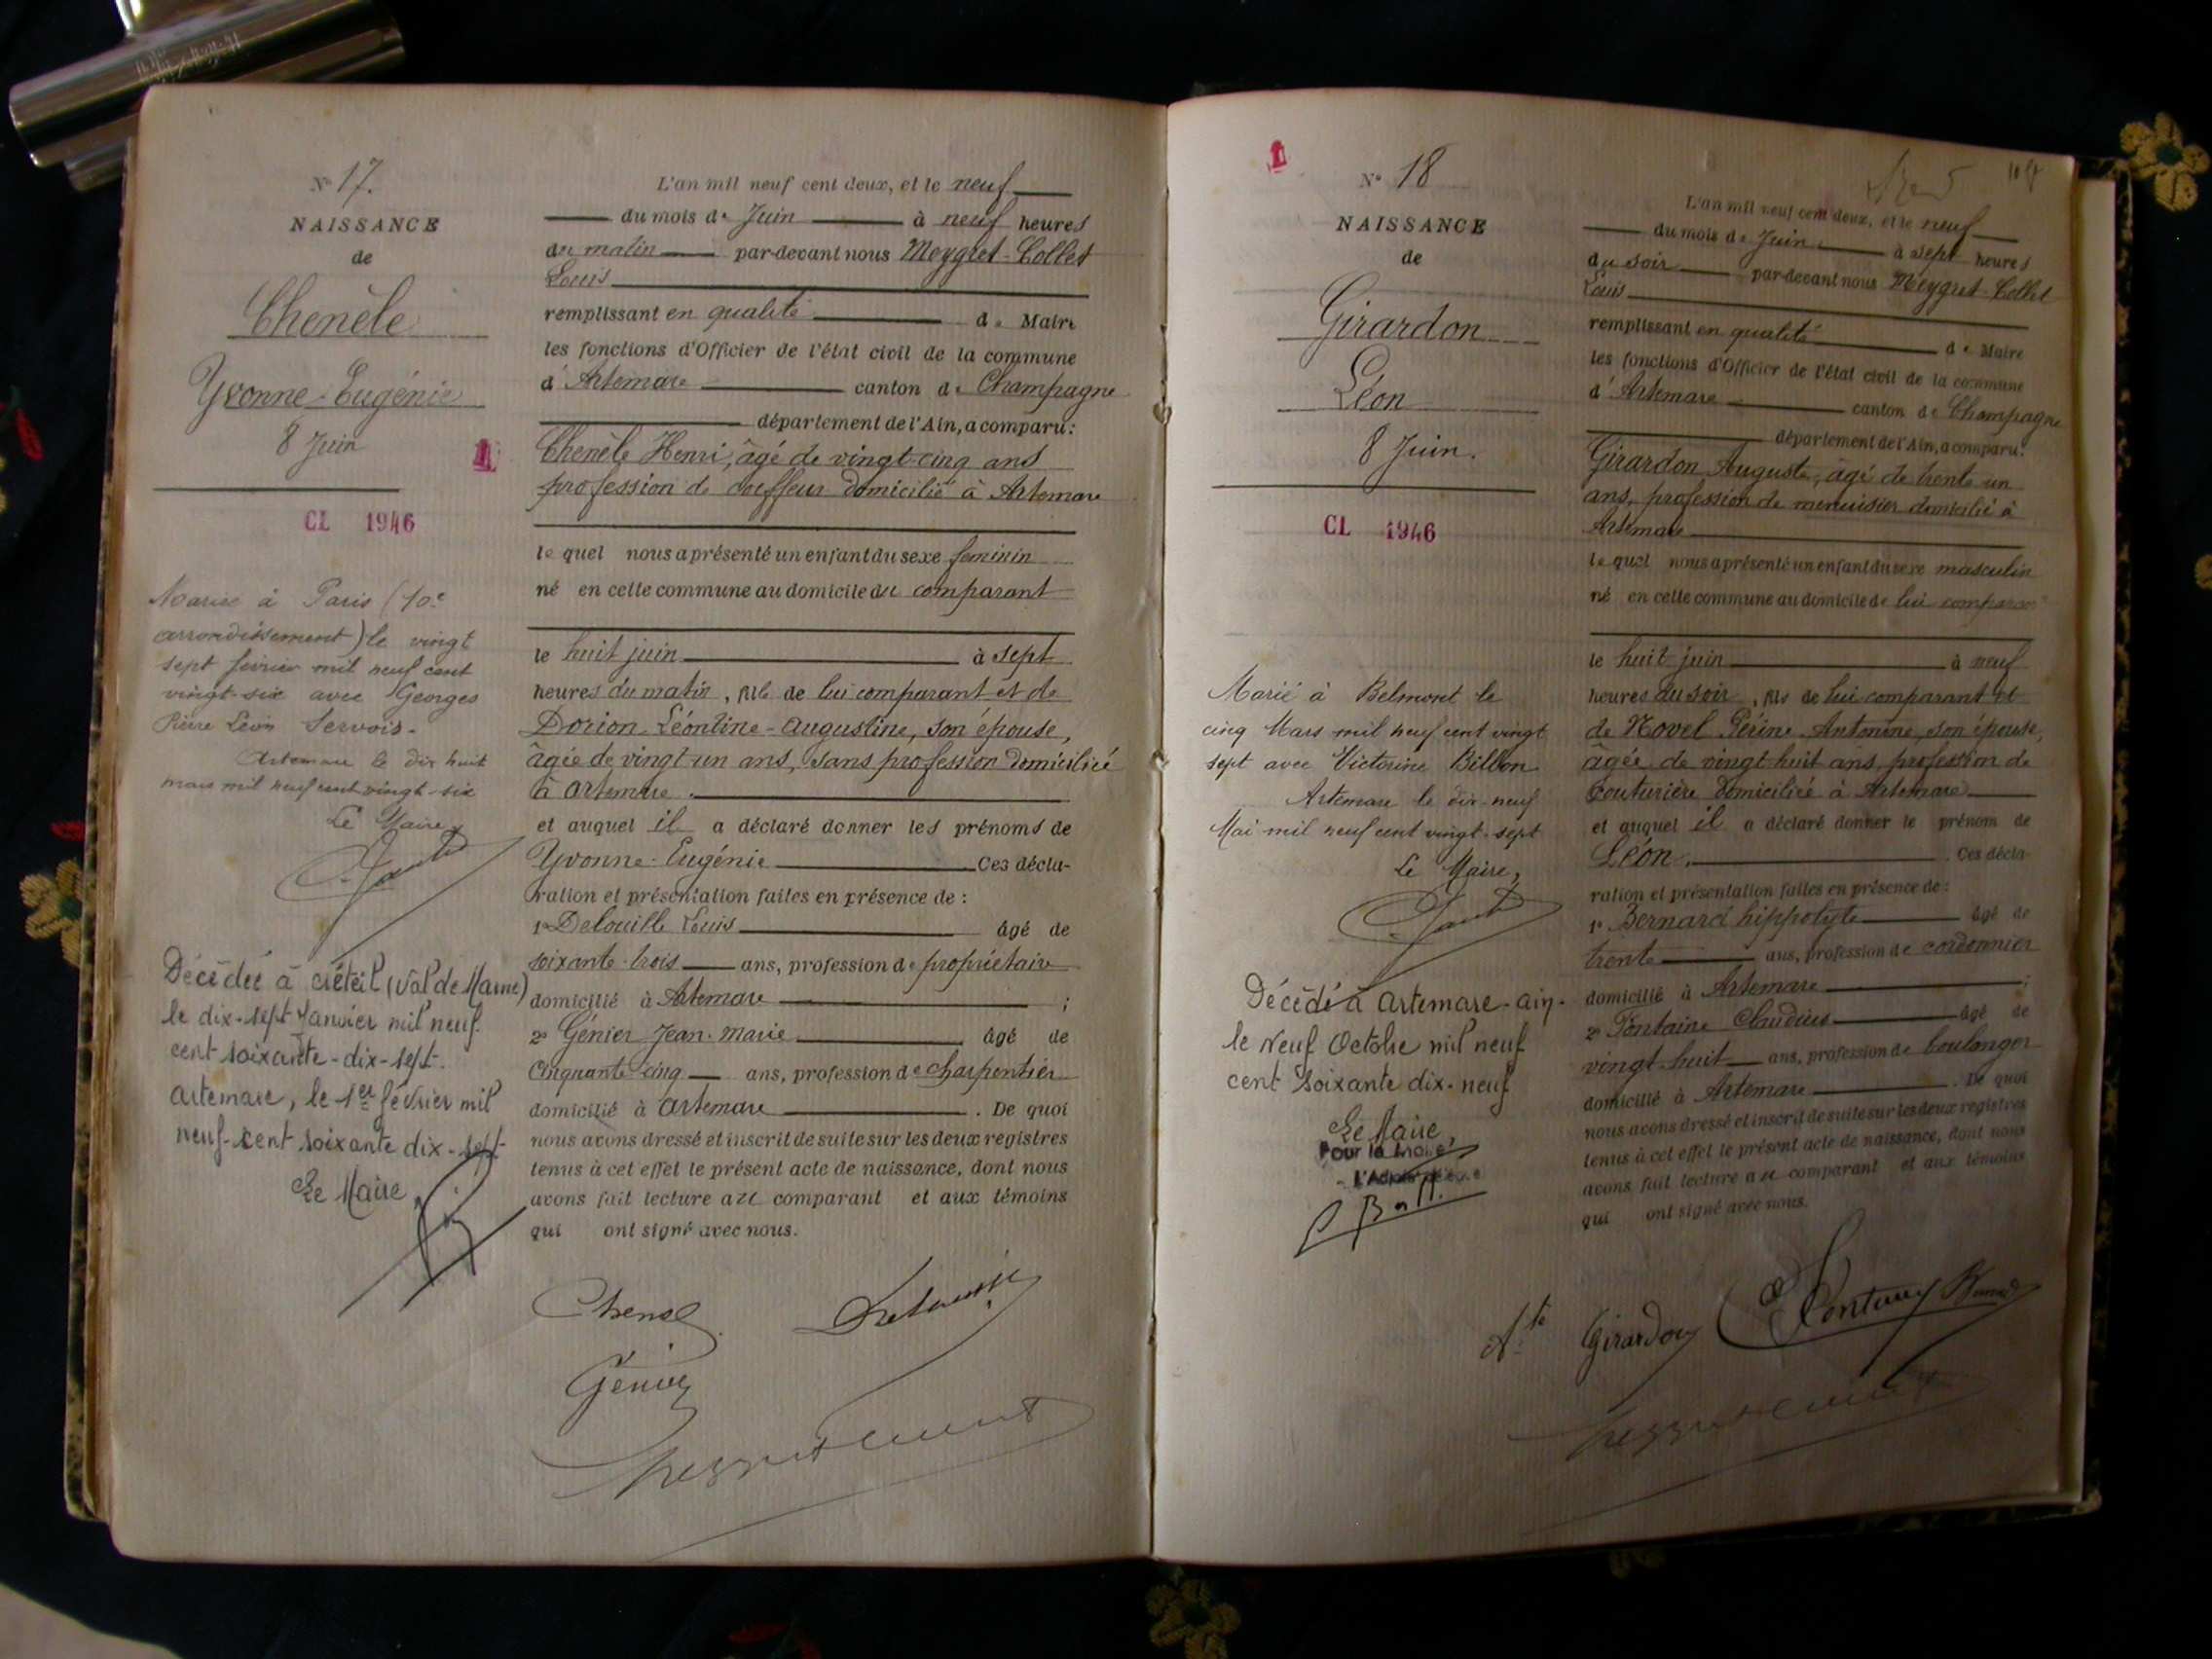 N° 17.
NAISSANCE
de
Chenèle
Yvonne-Eugénie
8 Juin
1
CL 1946
Mariée à Paris (10e
arrondissement) le vingt
sept février mil neuf cent
vingt-six avec Georges
Pierre Léon Servois.
Artemare le dix huit
mars mil neuf cent vingt-six
Le Maire,
Décédée à créteil (Val de Marne)
le dix-sept Janvier mil neuf
cent soixante-dix-sept.
artemare, le 1er février mil
neuf-cent soixante dix-sept
Le Maire,
L'an mil neuf cent deux, et le neuf
du mois de Juin à neuf heures
du matin par-devant nous Meygret-Collet
Louis
remplissant en qualité de Maire
les fonctions d'Officier de l'état civil de la commune
d'Artemare canton de Champagne
département de l'Ain, a comparu:
Chenèle Henri, âgé de vingt-cinq ans
profession de coiffeur domicilié à Artemare
le quel nous a présenté un enfant du sexe féminin
né en cette commune au domicile du comparant
le huit juin à sept
heures du matin, fille de lui comparant et de
Dorion Léontine-Augustine, son épouse,
âgée de vingt-un ans, sans profession domiciliée
à Artemare.
et auquel il a déclaré donner les prénoms de
Yvonne-Eugénie Ces décla-
ration et présentation faites en présence de :
1° Delouille Louis âgé de
soixante-trois ans, profession de propriétaire
domicilié à Artemare ;
2° Génier Jean-Marie âgé de
Cinquante cinq ans, profession de charpentier
domicilié à Artemare . De quoi
nous avons dressé et inscrit de suite sur les deux registres
tenus à cet effet le présent acte de naissance, dont nous
avons fait lecture au comparant et aux témoins
qui ont signé avec nous.
Génier
1
N° 18
NAISSANCE
de
Girardon
Léon
8 Juin.
CL 1946
Marié à Belmont le
cinq Mars mil neuf cent vingt
sept avec Victorine Billon
Artemare le dix-neuf
Mai mil neuf cent vingt-sept
Le Maire,
Décédé à artemare-ain-
le Neuf Octobre mil neuf
cent soixante dix-neuf
Le Maire,
Pour le Maire
L'an mil neuf cent deux, et le neuf
du mois de Juin à sept heures
du soir par-devant nous Meygret-Collet
Louis
remplissant en qualité de Maire
les fonctions d'Officier de l'état civil de la commune
d'Artemare canton de Champagne
département de l'Ain, a comparu:
Girardon Auguste, âgé de trente un
ans, profession de menuisier domicilié à
Artemare
le quel nous a présenté un enfant du sexe masculin
né en cette commune au domicile de lui comparant
le huit juin à neuf
heures du soir, fils de lui comparant et
de Novel Périne-Antonine, son épouse,
âgée de vingt-huit ans, profession de
couturière domiciliée à Artemare
et auquel il a déclaré donner le prénom de
Léon. Ces décla-
ration et présentation faites en présence de :
1° Bernard hippolyte âgé de
trente ans, profession de cordonnier
domicilié à Artemare ;
2° Fontaine Claudius âgé de
vingt-huit ans, profession de boulanger
domicilié à Artemare . De quoi
nous avons dressé et inscrit de suite sur les deux registres
tenus à cet effet le présent acte de naissance, dont nous
avons fait lecture au comparant et aux témoins
qui ont signé avec nous.
Ate Girardon